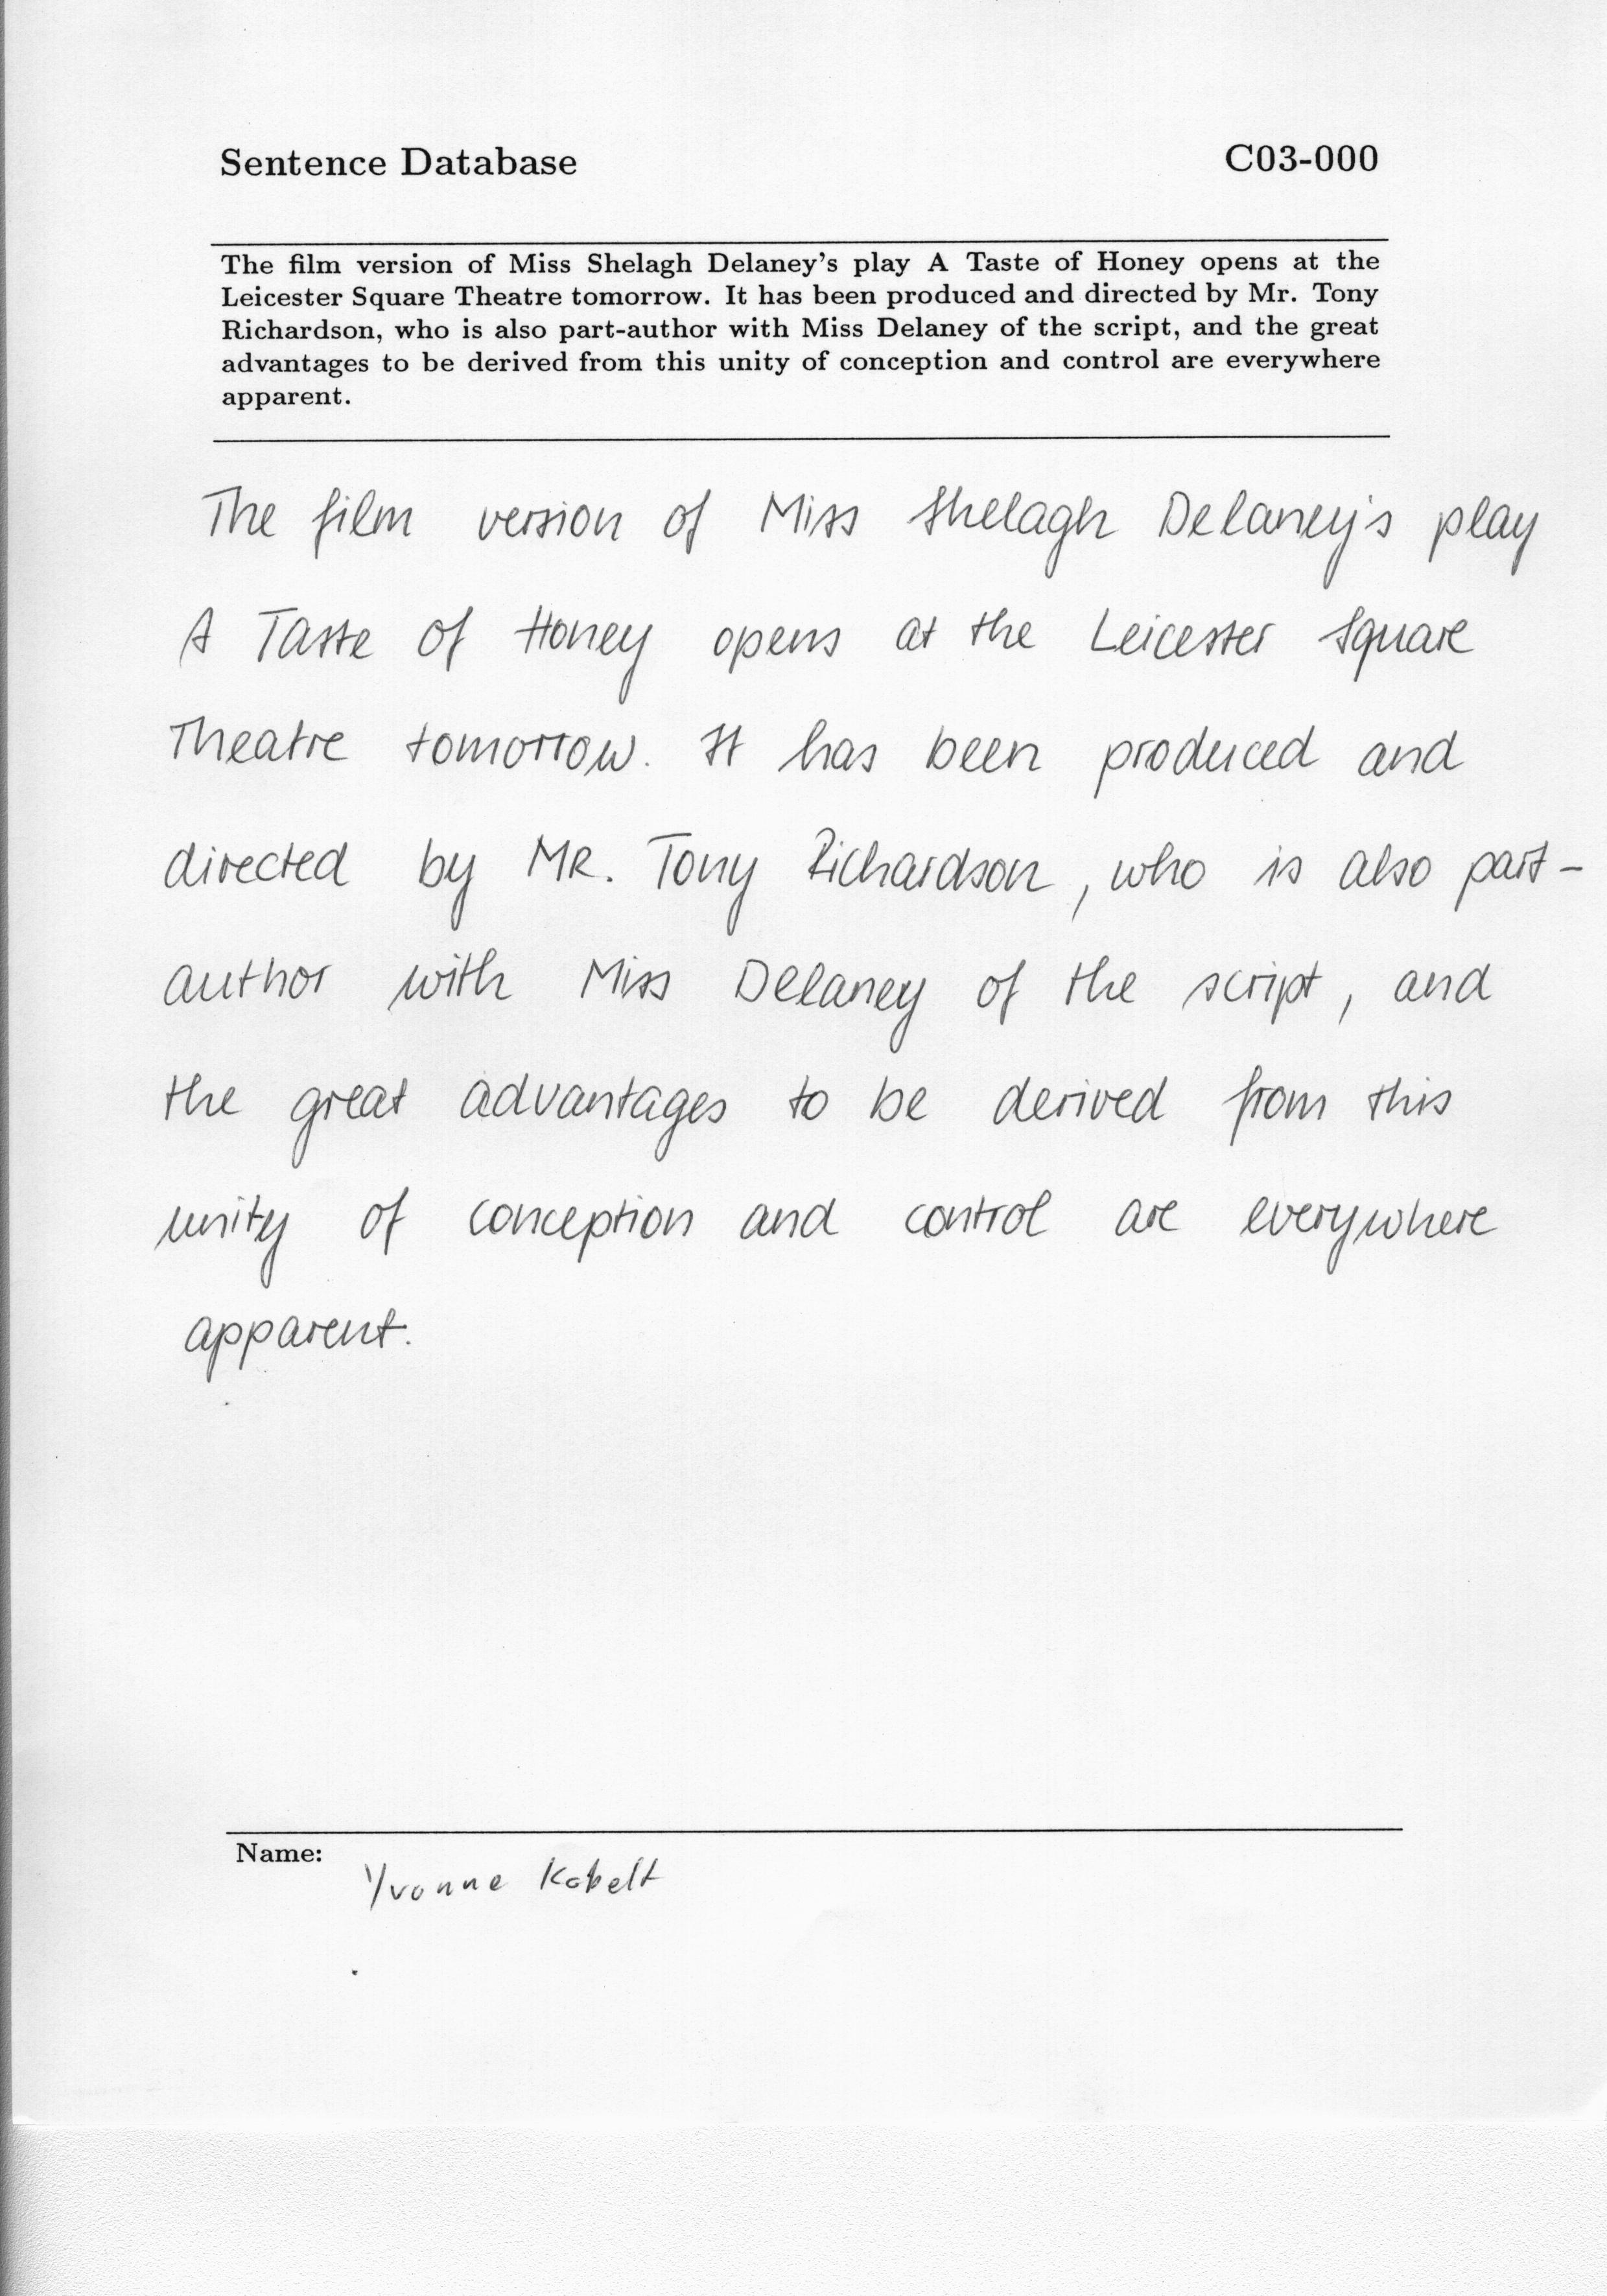 Sentence Database C03-000
The film version of Miss Shelagh Delaney's play A Taste of Honey opens at the
Leicester Square Theatre tomorrow. It has been produced and directed by Mr. Tony
Richardson, who is also part-author with Miss Delaney of the script, and the great
advantages to be derived from this unity of conception and control are everywhere
apparent.
The film version of Miss Shelagh Delaney's play
A Taste of Honey opens at the Leicester Square
Theatre tomorrow. It has been produced and
directed by MR. Tony Richardson, who is also part-
author with Miss Delaney of the script, and
the great advantages to be derived from this
unity of conception and control are everywhere
apparent.
Name:
Yvonne Kobelt